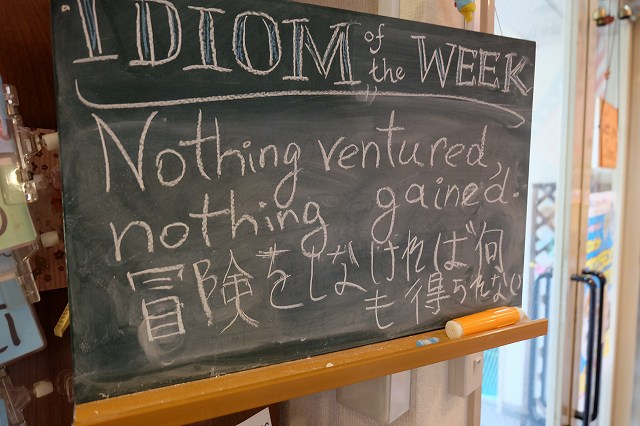 IDIOM of the WEEK
Nothing ventured,
nothing gained.
冒険をしなければ何
も得られない